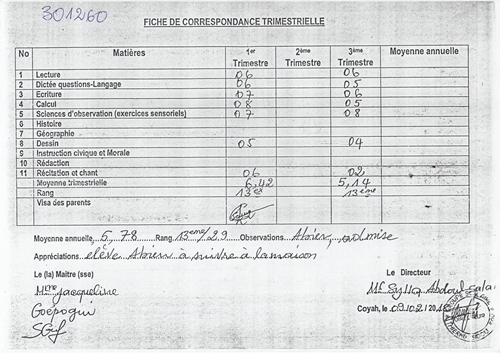 301260
FICHE DE CORRESPONDANCE TRIMESTRIELLE
No Matières 1er Trimestre 2ème Trimestre 3ème Trimestre Moyenne annuelle
1 Lecture 06 06
2 Dictée questions-Langage 06 05
3 Ecriture 07 06
4 Calcul 08 05
5 Sciences d'observation (exercices sensoriels) 07 08
6 Histoire
7 Géographie
8 Dessin 05 04
9 Instruction civique et Morale
10 Rédaction
11 Récitation et chant 06 02
Moyenne trimestrielle 6,42 5,14
Rang 13ex 13ème
Visa des parents
Moyenne annuelle 5,78 Rang 13eme/29 Observations admise
Appréciations élève à suivre à la maison
Le (la) Maitre (sse) Le Directeur
Mme Jacqueline Mr Sylla Abdoul
Goepogui Coyah, le 09/02/201